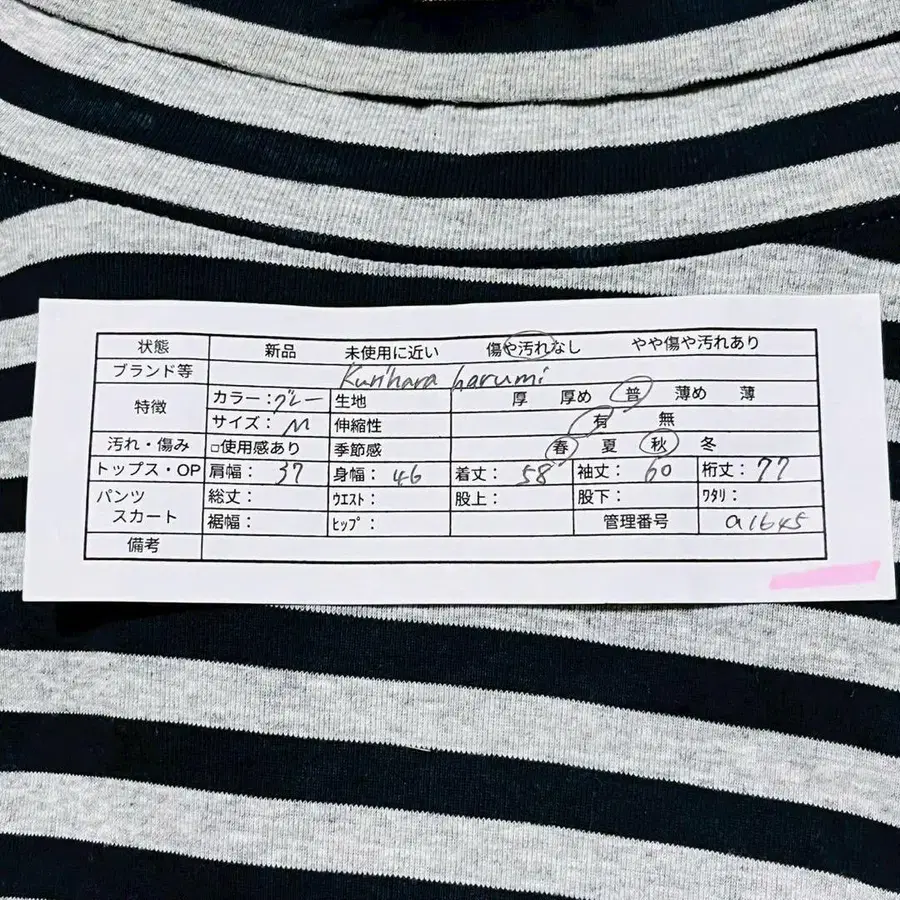 状態 新品 未使用に近い 傷や汚れなし やや傷や汚れあり
ブランド等 Kurihara harumi
特徴 カラー：グレー 生地 厚 厚め 普 薄め 薄
サイズ：M 伸縮性 有 無
汚れ・傷み □使用感あり 季節感 春 夏 秋 冬
トップス・OP 肩幅：37 身幅：46 着丈：58 袖丈：60 裄丈：77
パンツ 総丈： ｳｴｽﾄ： 股上： 股下： ﾜﾀﾘ：
スカート 裾幅： ﾋｯﾌﾟ： 管理番号 a1645
備考